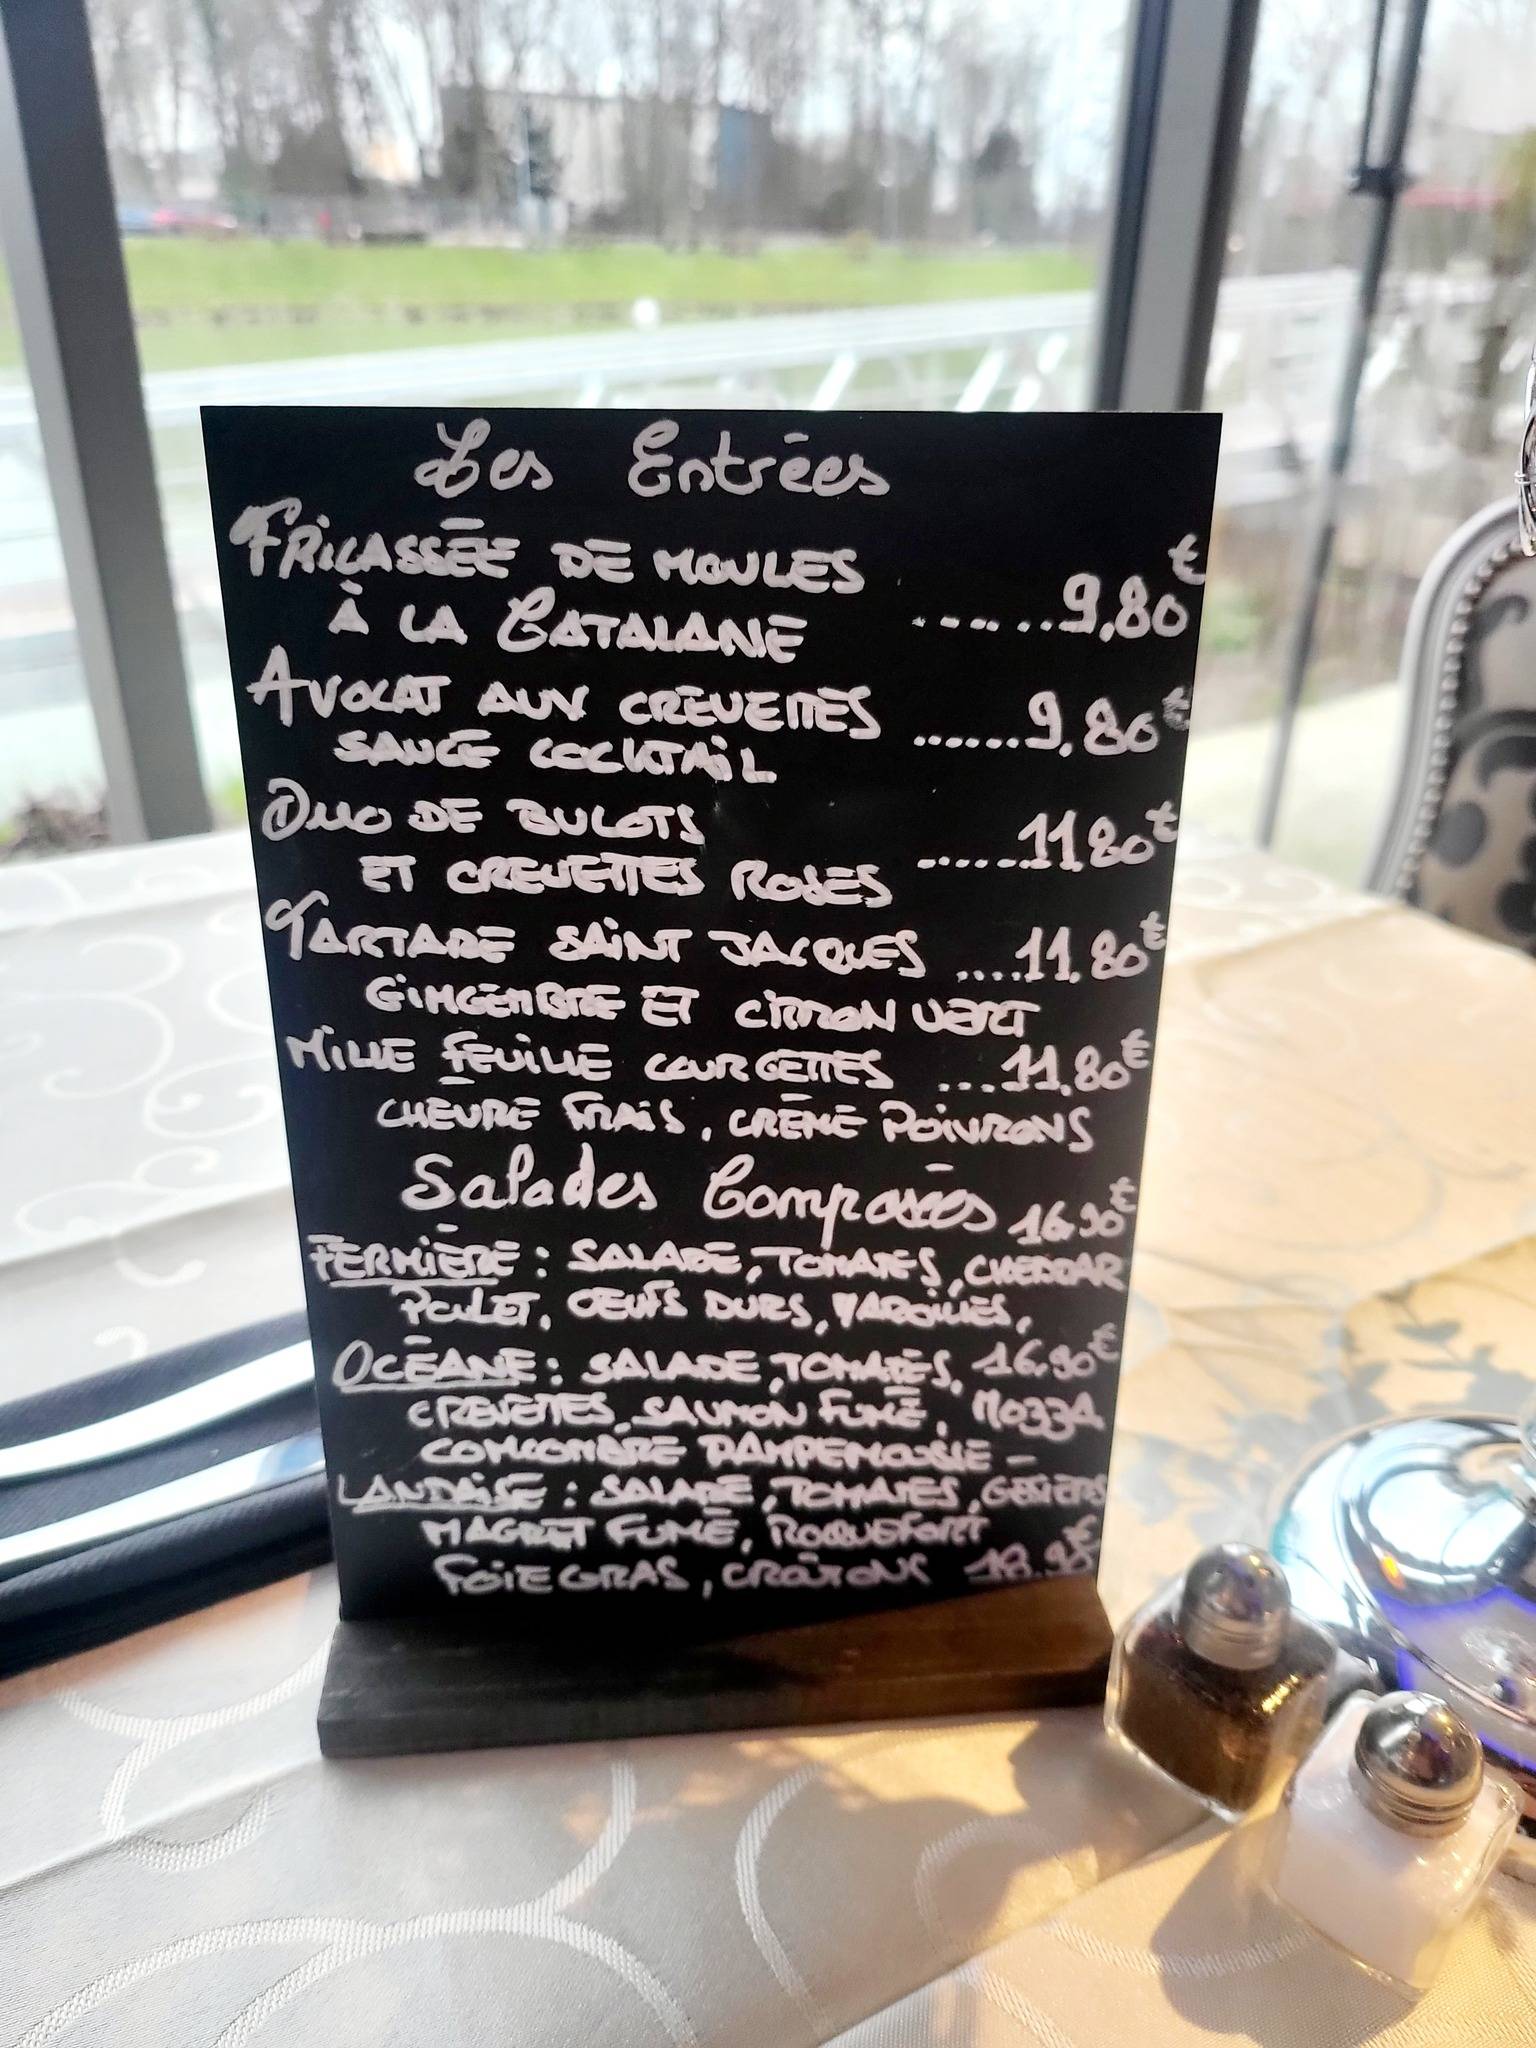 Les Entrées
FRICASSÉE DE MOULES
À LA CATALANE ......9,80€
AVOCAT AUX CREVETTES
SAUCE COCKTAIL ......9.80€
DUO DE BULOTS
ET CREVETTES ROSES ......11.80€
TARTARE SAINT JACQUES ....11.80€
GINGEMBRE ET CITRON VERT
MILLE FEUILLE COURGETTES ...11.80€
CHÈVRE FRAIS, CRÈME POIVRONS
Salades Composées 16.90€
FERMIÈRE : SALADE, TOMATES, CHEDDAR
POULET, OEUFS DURS, MAROILLES,
OCÉANE : SALADE, TOMATES, 16.90€
CREVETTES, SAUMON FUMÉ, MOZZA
CONCOMBRE PAMPEMOUSSE -
LANDAISE : SALADE, TOMATES, GESIERS
MAGRET FUMÉ, ROQUEFORT
FOIE GRAS, CROÛTONS 18.90€